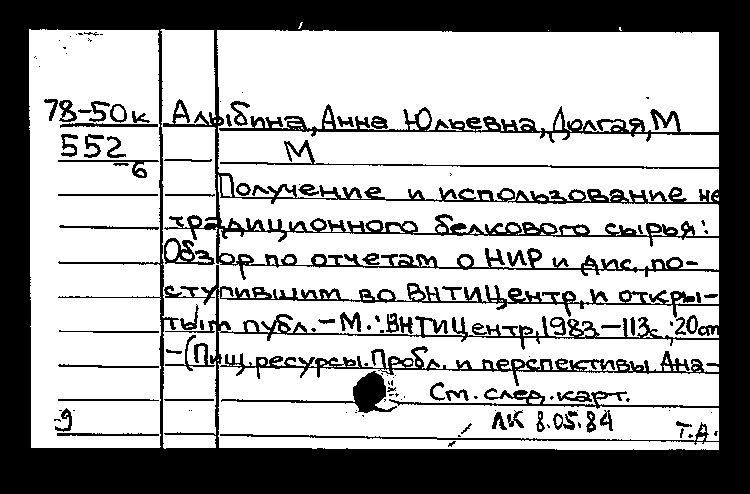 78-50к Алыбина, Анна Юльевна, Долгая, М
552 М
-6
Получение и использование не
традиционного белкового сырья:
Обзор по отчетам о НИР и дис., по-
ступившим во ВНТИЦентр, и откры-
тым публ. - М.: ВНТИЦентр, 1983 - 113с.; 20см
-(Пищ. ресурсы. Пробл. и перспективы Ана-
См. след. карт.
9 ЛК 8.05.84 Т.А.